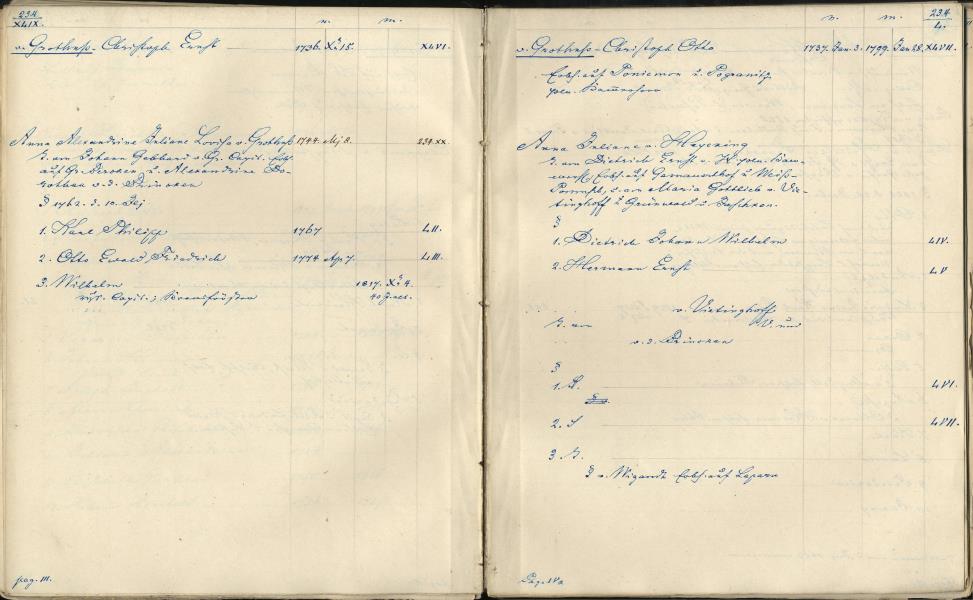 234
XLIX.
n. m.
v. Grothuß - Christoph Ernst 1736. Xr 15. XLVI.
Anna Alexandrine Juliane Lovisa v. Grothuß 1744. Mj 8. 234.XX.
T. von Johann Gebhard v. Gr. Capit. Erbh.
auf Gr. u. Alexandrine Do-
rothea v. d. Brincken
§ 1762. d. 10. Dej
1. Karl Philipp 1767 LII.
2. Otto Ewald Friedrich 1774 Ap 7. LIII.
3. Wilhelm 1817. Xr 4.
russ. Capit.; 40 J. alt.
pag. III.
234
L.
n. m.
v. Grothuß - Christoph Otto 1737. Jan 3. 1799. Jan 28. XLVII.
Erbh. auf Poniemon u. Pogranitz
poln. Kammerherr
Anna Juliane v. Heyking
T. von Dietrich Ernst v. H. poln. Kam-
merh., Erbh. auf u. Weiß-
u. von Maria Gottlieb v. Vie-
tinghoff z. Grünwald u.
§
1. Dietrich Johann Wilhelm LIV.
2. Hermann Ernst LV
v. Vietinghoff
T. von V. und
v. d. Brincken
§
1. S. LVI.
2. S LVII.
3. T.
§ v. Wigandt Erbh. auf Laparn
Pag. IVa